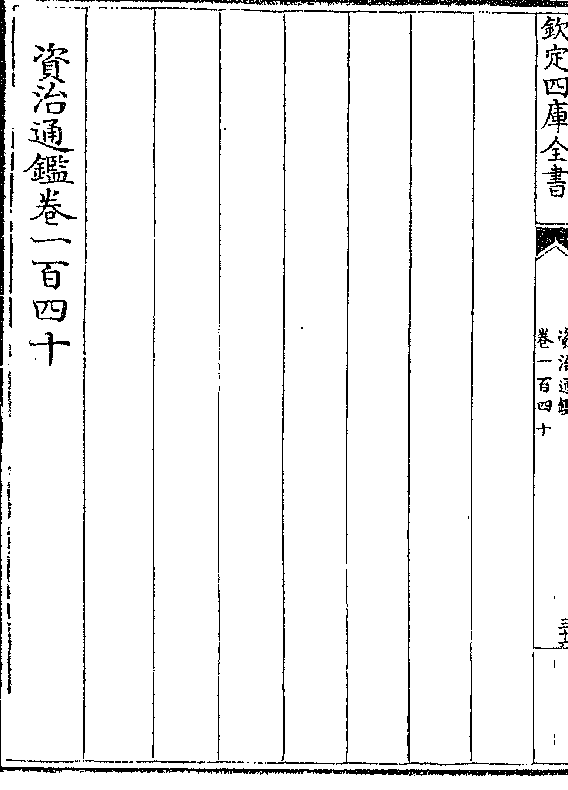 欽定四庫全書
資治通鑑
卷一百四十
資治通鑑卷一百四十